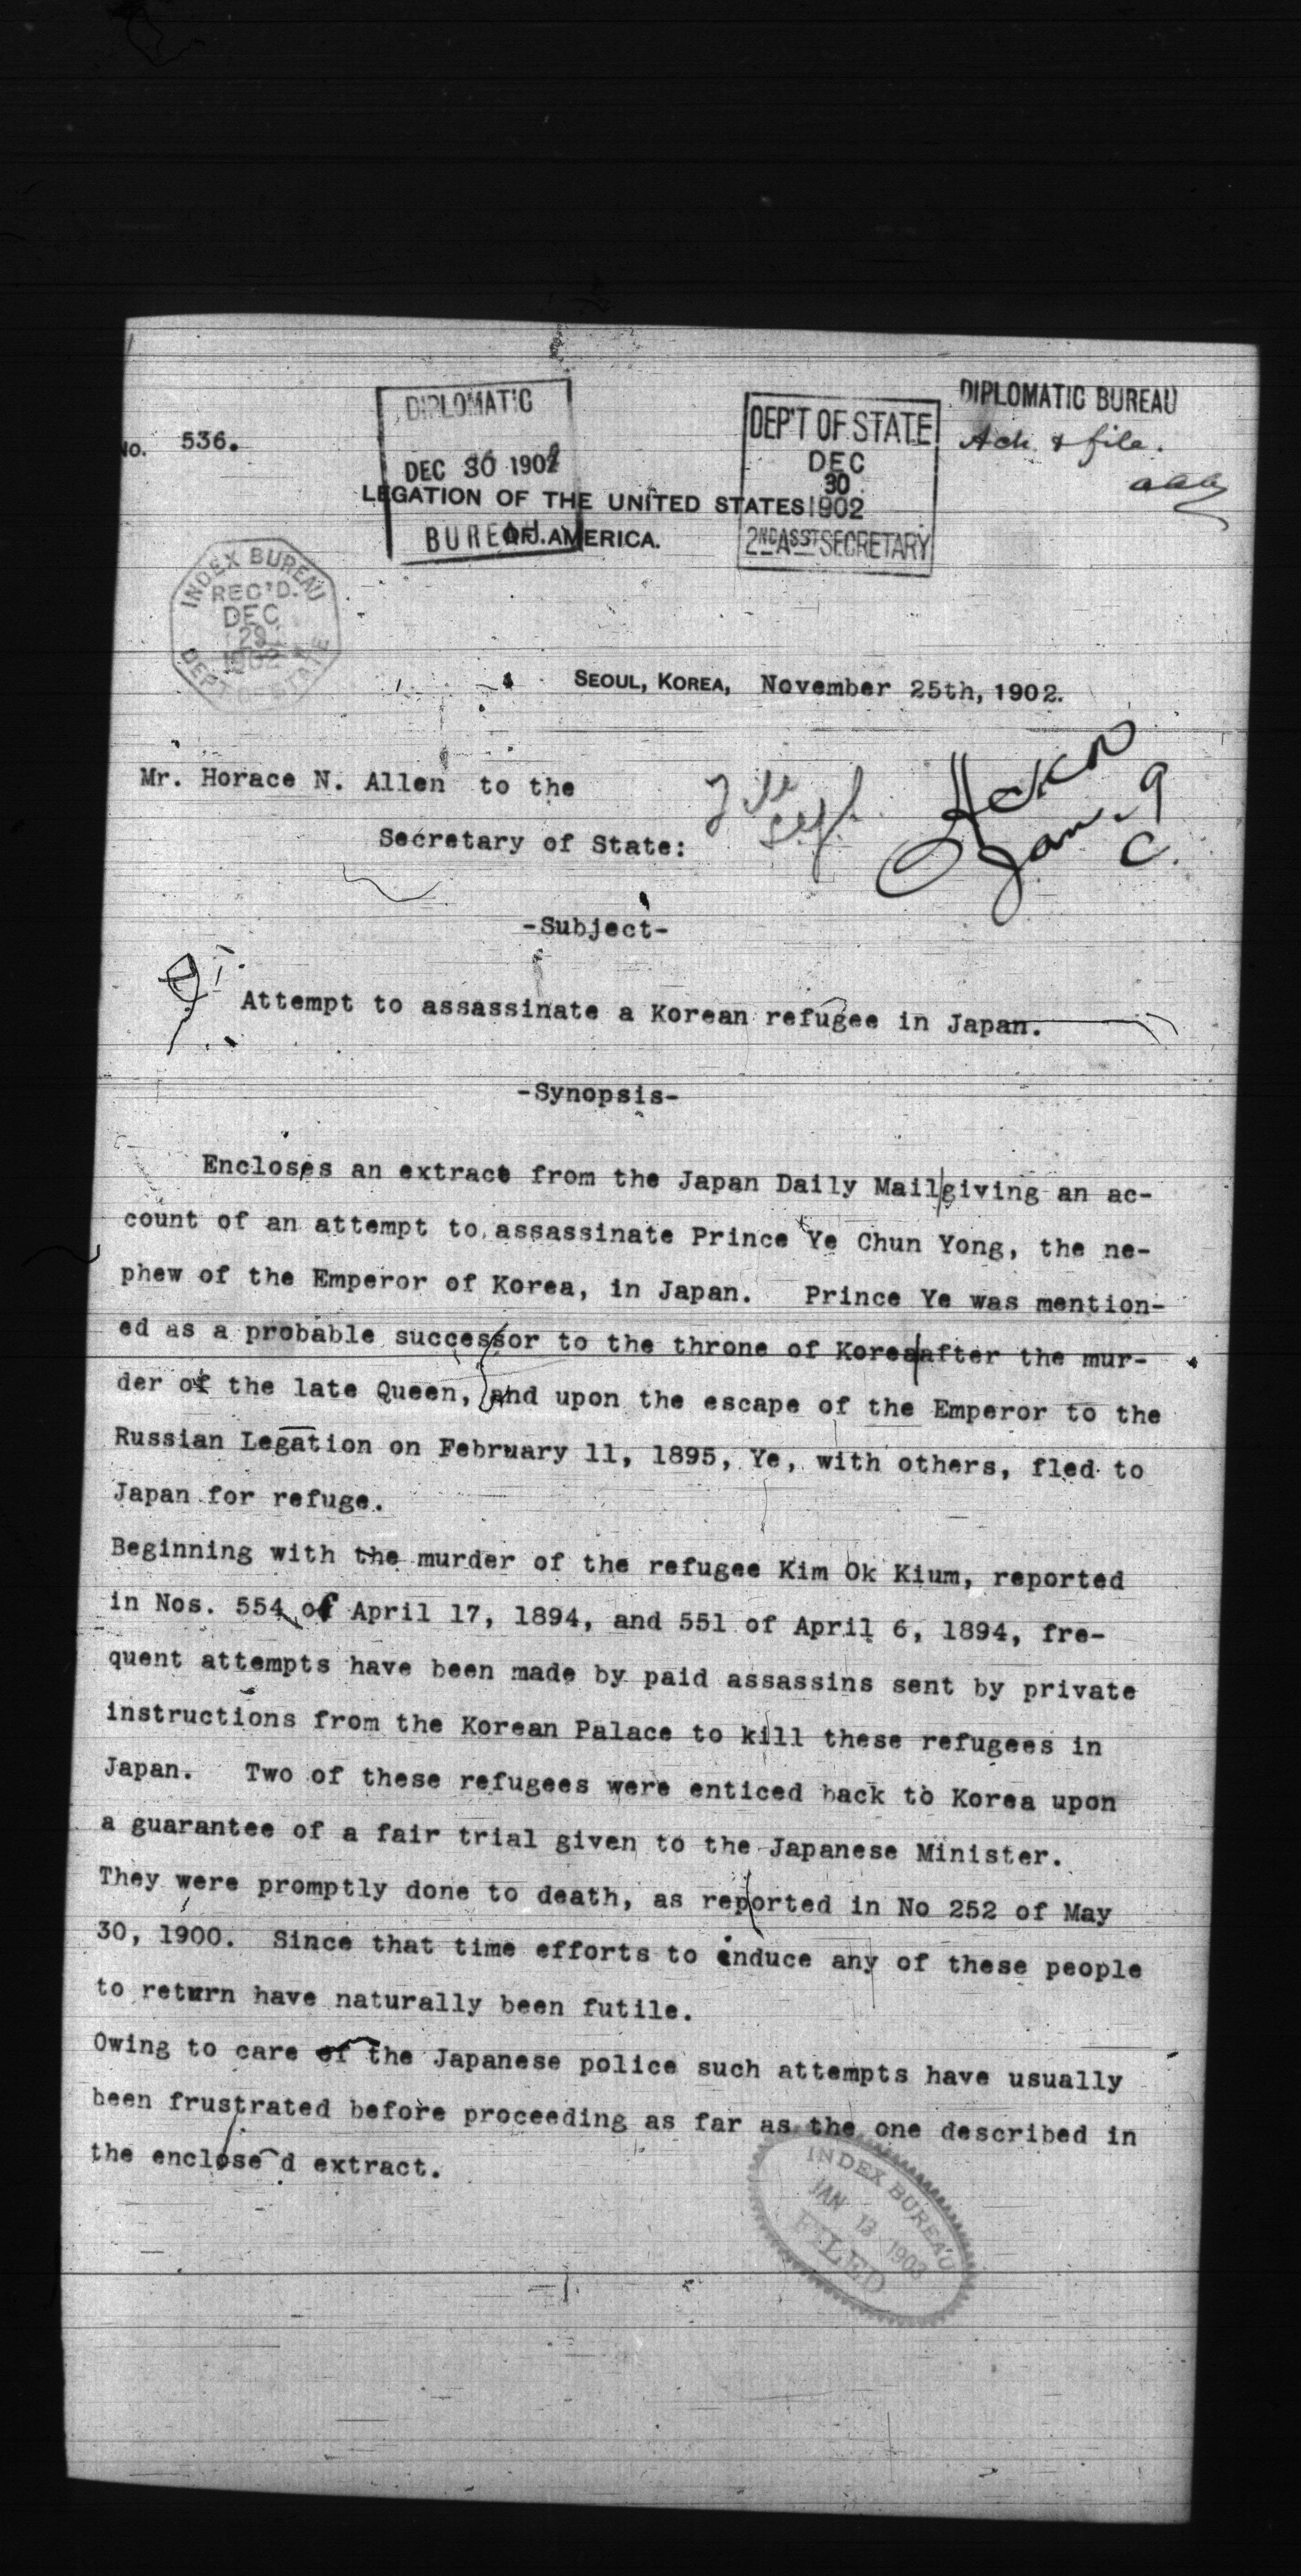 No. 536.
DIPLOMATIC
DEC 30 1902
BUREAU.
DEP'T OF STATE
DEC
30
1902
2ND ASS'T SECRETARY
DIPLOMATIC BUREAU
Ack & file.
aaa
LEGATION OF THE UNITED STATES
OF AMERICA.
INDEX BUREAU
REC'D.
DEC
29
1902
DEPT OF STATE
SEOUL, KOREA, November 25th, 1902.
Mr. Horace N. Allen to the
Secretary of State:
Ackn
Jan. 9
C.
-Subject-
Attempt to assassinate a Korean refugee in Japan.
-Synopsis-
Encloses an extract from the Japan Daily Mail giving an ac-
count of an attempt to assassinate Prince Ye Chun Yong, the ne-
phew of the Emperor of Korea, in Japan. Prince Ye was mention-
ed as a probable successor to the throne of Korea after the mur-
der of the late Queen, and upon the escape of the Emperor to the
Russian Legation on February 11, 1895, Ye, with others, fled to
Japan for refuge.
Beginning with the murder of the refugee Kim Ok Kium, reported
in Nos. 554 of April 17, 1894, and 551 of April 6, 1894, fre-
quent attempts have been made by paid assassins sent by private
instructions from the Korean Palace to kill these refugees in
Japan. Two of these refugees were enticed back to Korea upon
a guarantee of a fair trial given to the Japanese Minister.
They were promptly done to death, as reported in No 252 of May
30, 1900. Since that time efforts to induce any of these people
to return have naturally been futile.
Owing to care of the Japanese police such attempts have usually
been frustrated before proceeding as far as the one described in
the enclosed extract.
INDEX BUREAU
JAN 13 1903
FILED